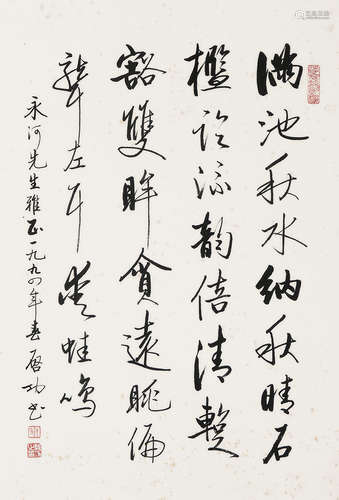 满池秋水纳秋晴石
槛论添韵倍清暂
豁双眸贪远眺偏
聋左耳爱蛙鸣
永河先生雅正一九九四年春启功书